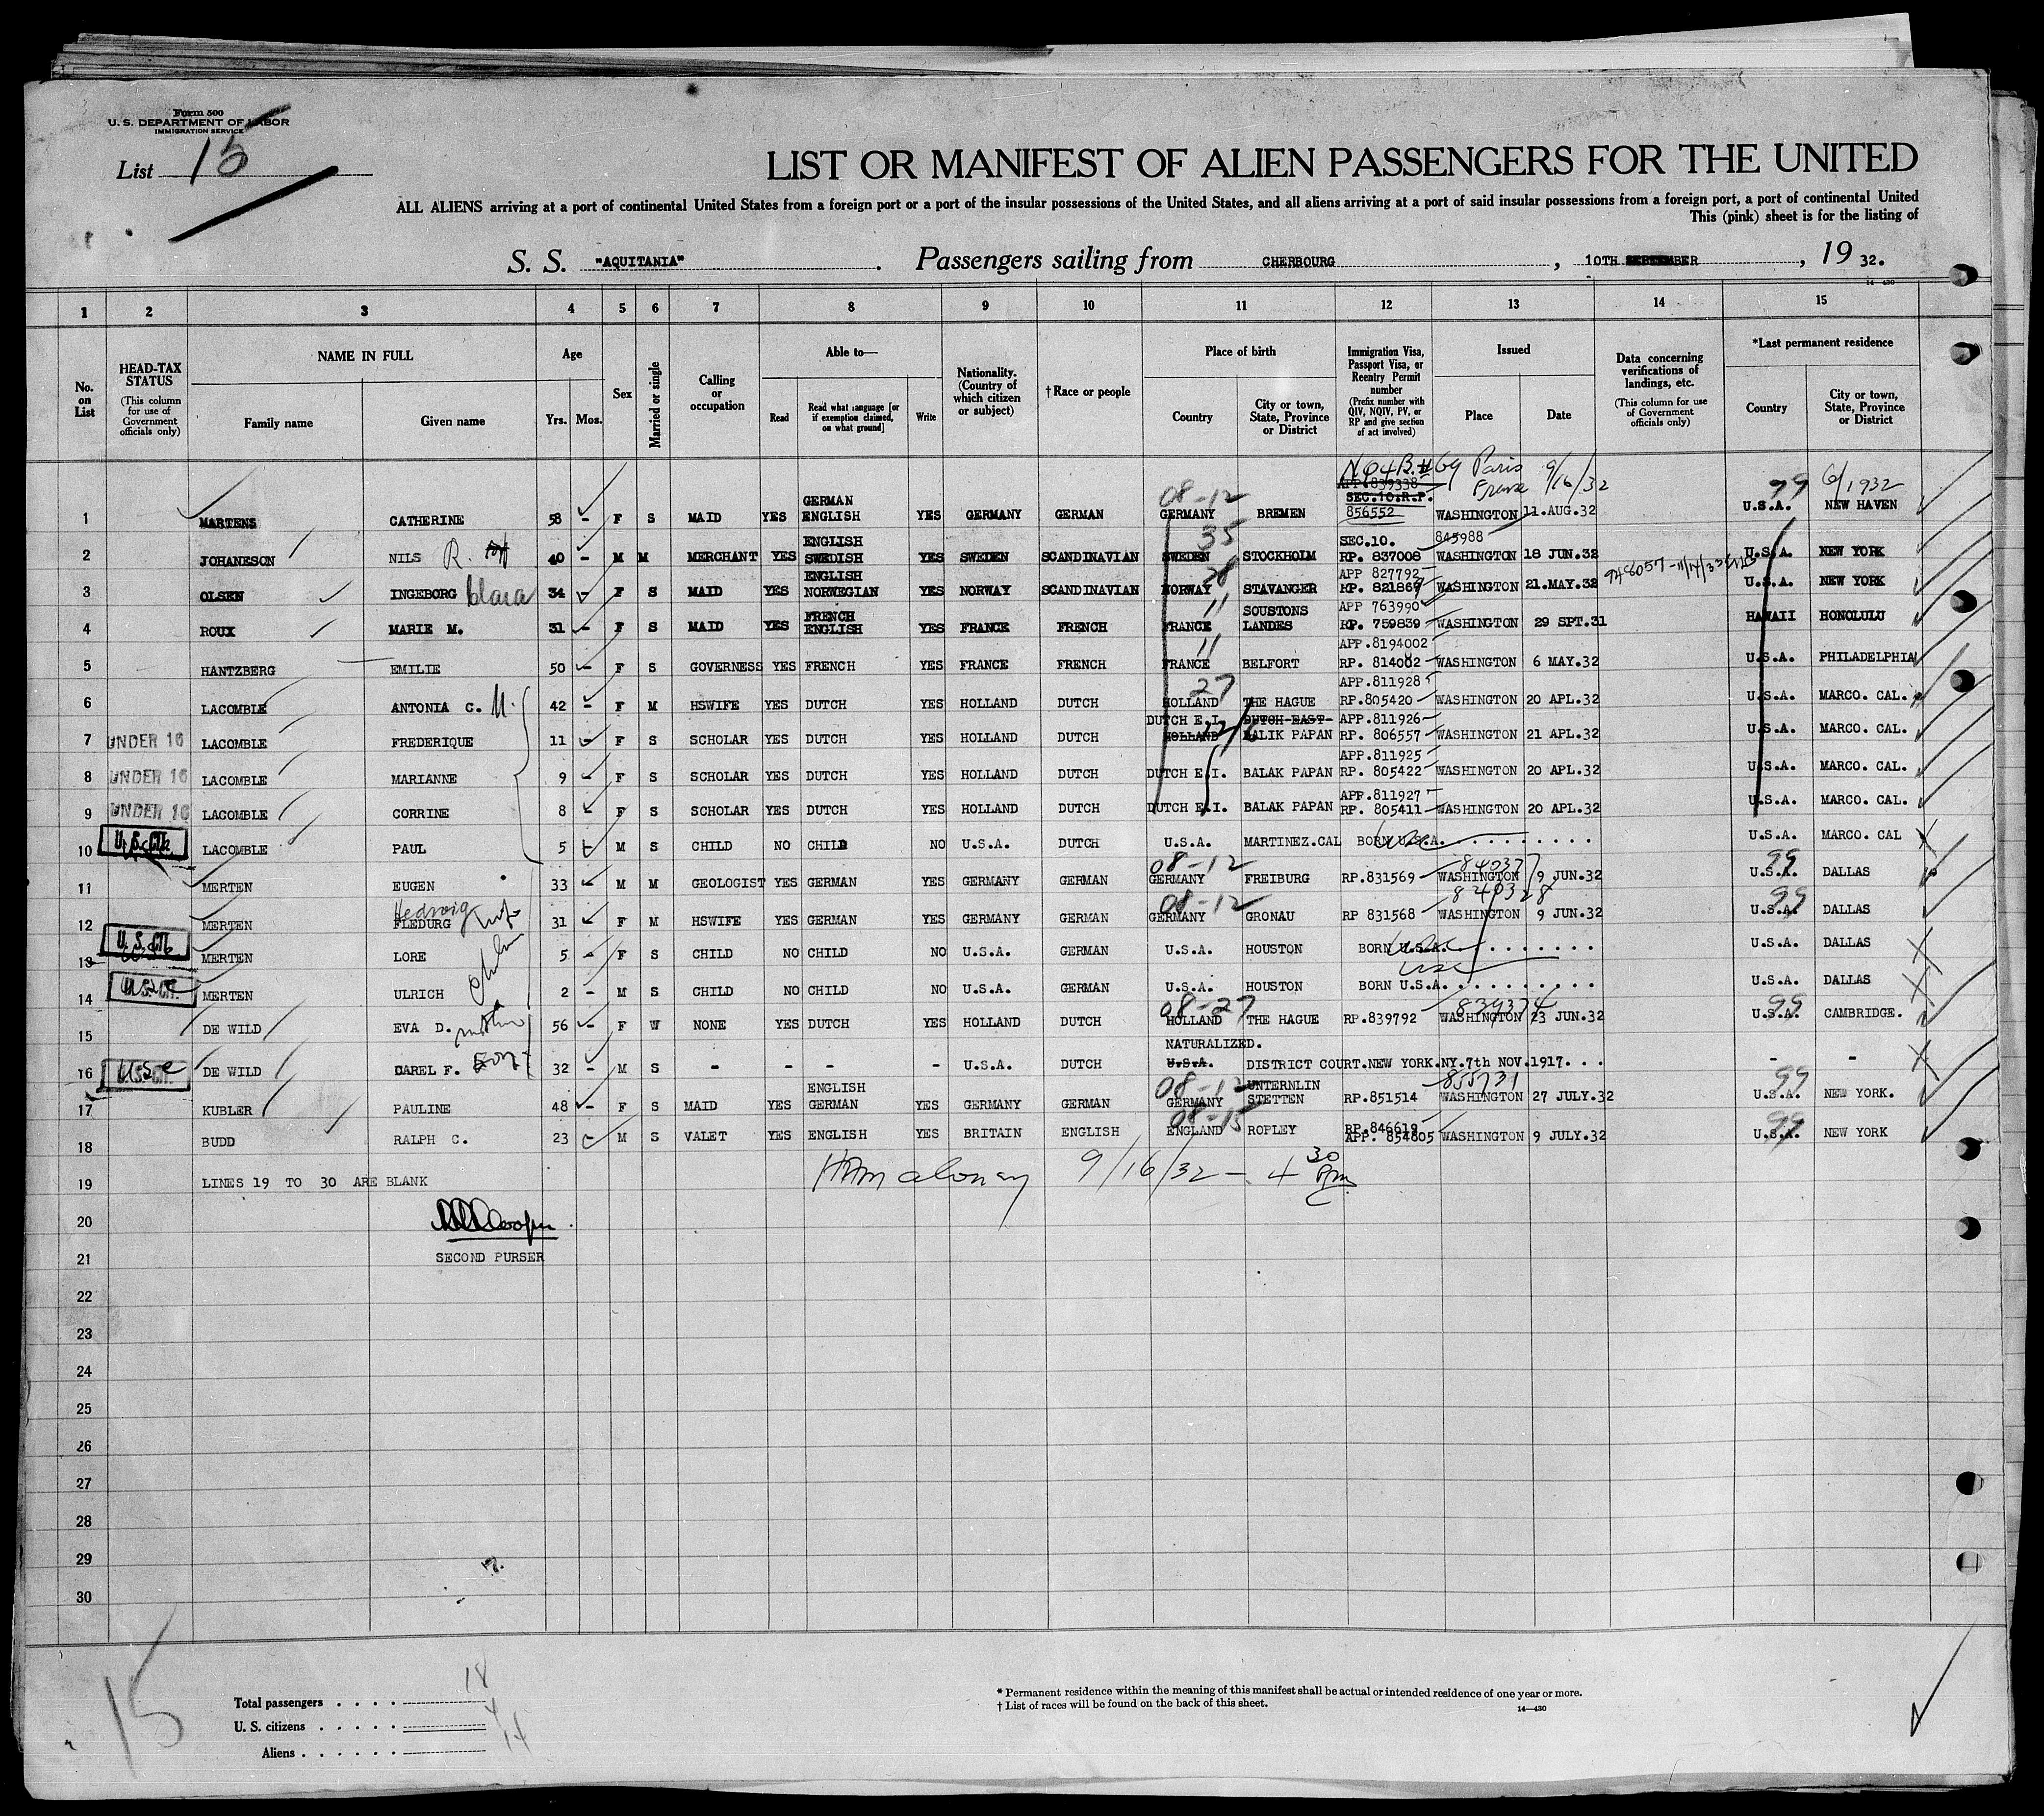 Form 500
U. S. DEPARTMENT OF LABOR
IMMIGRATION SERVICE
List 15
LIST OR MANIFEST OF ALIEN PASSENGERS FOR THE UNITED
ALL ALIENS arriving at a port of continental United States from a foreign port or a port of the insular possessions of the United States, and all aliens arriving at a port of said insular possessions from a foreign port, a port of continental United
This (pink) sheet is for the listing of
S. S. "AQUITANIA" . Passengers sailing from CHERBOURG , 10TH SEPTEMBER , 19 32.
14—430
1 2 3 4 5 6 7 8 9 10 11 12 13 14 15
No. on List
HEAD-TAX STATUS (This column for use of Government officials only)
NAME IN FULL
Family name Given name
Age
Yrs. Mos.
Sex
Married or single
Calling or occupation
Able to—
Read Read what language [or if exemption claimed, on what ground] Write
Nationality. (Country of which citizen or subject)
† Race or people
Place of birth
Country City or town, State, Province or District
Immigration Visa, Passport Visa, or Reentry Permit number (Prefix number with QIV, NQIV, PV, or RP and give section of act involved)
Issued
Place Date
Data concerning verifications of landings, etc. (This column for use of Government officials only)
*Last permanent residence
Country City or town, State, Province or District
#69 Paris 9/16/32
APP.839338
GERMAN 08-12 SEC.10.R.P. 99 1932
1 MARTENS CATHERINE 58 - F S MAID YES ENGLISH YES GERMANY GERMAN GERMANY BREMEN 856552 WASHINGTON 11.AUG.32 U.S.A. NEW HAVEN
ENGLISH 35 SEC.10. 845988
2 JOHANESON NILS R. 40 - M M MERCHANT YES SWEDISH YES SWEDEN SCANDINAVIAN SWEDEN STOCKHOLM RP. 837008 WASHINGTON 18 JUN.32 U.S.A. NEW YORK
ENGLISH 28 APP 827792
3 OLSEN INGEBORG Clara 34 F S MAID YES NORWEGIAN YES NORWAY SCANDINAVIAN NORWAY STAVANGER RP. 821867 WASHINGTON 21.MAY.32 U.S.A. NEW YORK
FRENCH 11 SOUSTONS APP 763990
4 ROUX MARIE M. 31 - F S MAID YES ENGLISH YES FRANCE FRENCH FRANCE LANDES RP. 759839 WASHINGTON 29 SPT.31 HAWAII HONOLULU
11 APP.8194002
5 HANTZBERG EMILIE 50 - F S GOVERNESS YES FRENCH YES FRANCE FRENCH FRANCE BELFORT RP. 814002 WASHINGTON 6 MAY.32 U.S.A. PHILADELPHIA
27 APP.811928
6 LACOMBLE ANTONIA C. M. 42 - F M HSWIFE YES DUTCH YES HOLLAND DUTCH HOLLAND THE HAGUE RP.805420 WASHINGTON 20 APL.32 U.S.A. MARCO. CAL.
DUTCH E.I. DUTCH-EAST- APP.811926
7 UNDER 16 LACOMBLE FREDERIQUE 11 - F S SCHOLAR YES DUTCH YES HOLLAND DUTCH HOLLAND BALIK PAPAN RP. 806557 WASHINGTON 21 APL.32 U.S.A. MARCO. CAL.
APP.811925
8 UNDER 16 LACOMBLE MARIANNE 9 - F S SCHOLAR YES DUTCH YES HOLLAND DUTCH DUTCH E.I. BALAK PAPAN RP. 805422 WASHINGTON 20 APL.32 U.S.A. MARCO. CAL.
APP.811927
9 UNDER 16 LACOMBLE CORRINE 8 - F S SCHOLAR YES DUTCH YES HOLLAND DUTCH DUTCH E.I. BALAK PAPAN RP. 805411 WASHINGTON 20 APL.32 U.S.A. MARCO. CAL.
10 U.S.Ctz. LACOMBLE PAUL 5 M S CHILD NO CHILD NO U.S.A. DUTCH U.S.A. MARTINEZ.CAL BORN U.S.A. U.S.A. MARCO. CAL
08-12 99
11 MERTEN EUGEN 33 - M M GEOLOGIST YES GERMAN YES GERMANY GERMAN GERMANY FREIBURG RP.831569 WASHINGTON 9 JUN.32 U.S.A. DALLAS
Hedwig 08-12 840328 99
12 MERTEN FLEDURG wife 31 - F M HSWIFE YES GERMAN YES GERMANY GERMAN GERMANY GRONAU RP 831568 WASHINGTON 9 JUN.32 U.S.A. DALLAS
13 U.S.Ctz. MERTEN LORE 5 - F S CHILD NO CHILD NO U.S.A. GERMAN U.S.A. HOUSTON BORN U.S.A. U.S.A. DALLAS
14 U.S.Ct. MERTEN ULRICH 2 - M S CHILD NO CHILD NO U.S.A. GERMAN U.S.A. HOUSTON BORN U.S.A. U.S.A. DALLAS
08-27 839374 99
15 DE WILD EVA D. mother 56 - F W NONE YES DUTCH YES HOLLAND DUTCH HOLLAND THE HAGUE RP.839792 WASHINGTON 23 JUN.32 U.S.A. CAMBRIDGE.
NATURALIZED.
16 DE WILD CAREL F. Son 32 - M S - - - - U.S.A. DUTCH U.S.A. DISTRICT COURT.NEW YORK.NY.7th NOV.1917. . . - -
ENGLISH 08-12 UNTERNLIN 855731 99
17 KUBLER PAULINE 48 - F S MAID YES GERMAN YES GERMANY GERMAN GERMANY STETTEN RP.851514 WASHINGTON 27 JULY.32 U.S.A. NEW YORK.
08-15 RP.846619 99
18 BUDD RALPH C. 23 - M S VALET YES ENGLISH YES BRITAIN ENGLISH ENGLAND ROPLEY APP. 854805 WASHINGTON 9 JULY.32 U.S.A. NEW YORK
9/16/32 - 4 30 Pm
19 LINES 19 TO 30 ARE BLANK
20
SECOND PURSER
21
22
23
24
25
26
27
28
29
30
15
Total passengers . . . . 18
U. S. citizens . . . . . 4
Aliens . . . . . 14
* Permanent residence within the meaning of this manifest shall be actual or intended residence of one year or more.
† List of races will be found on the back of this sheet.
14—430